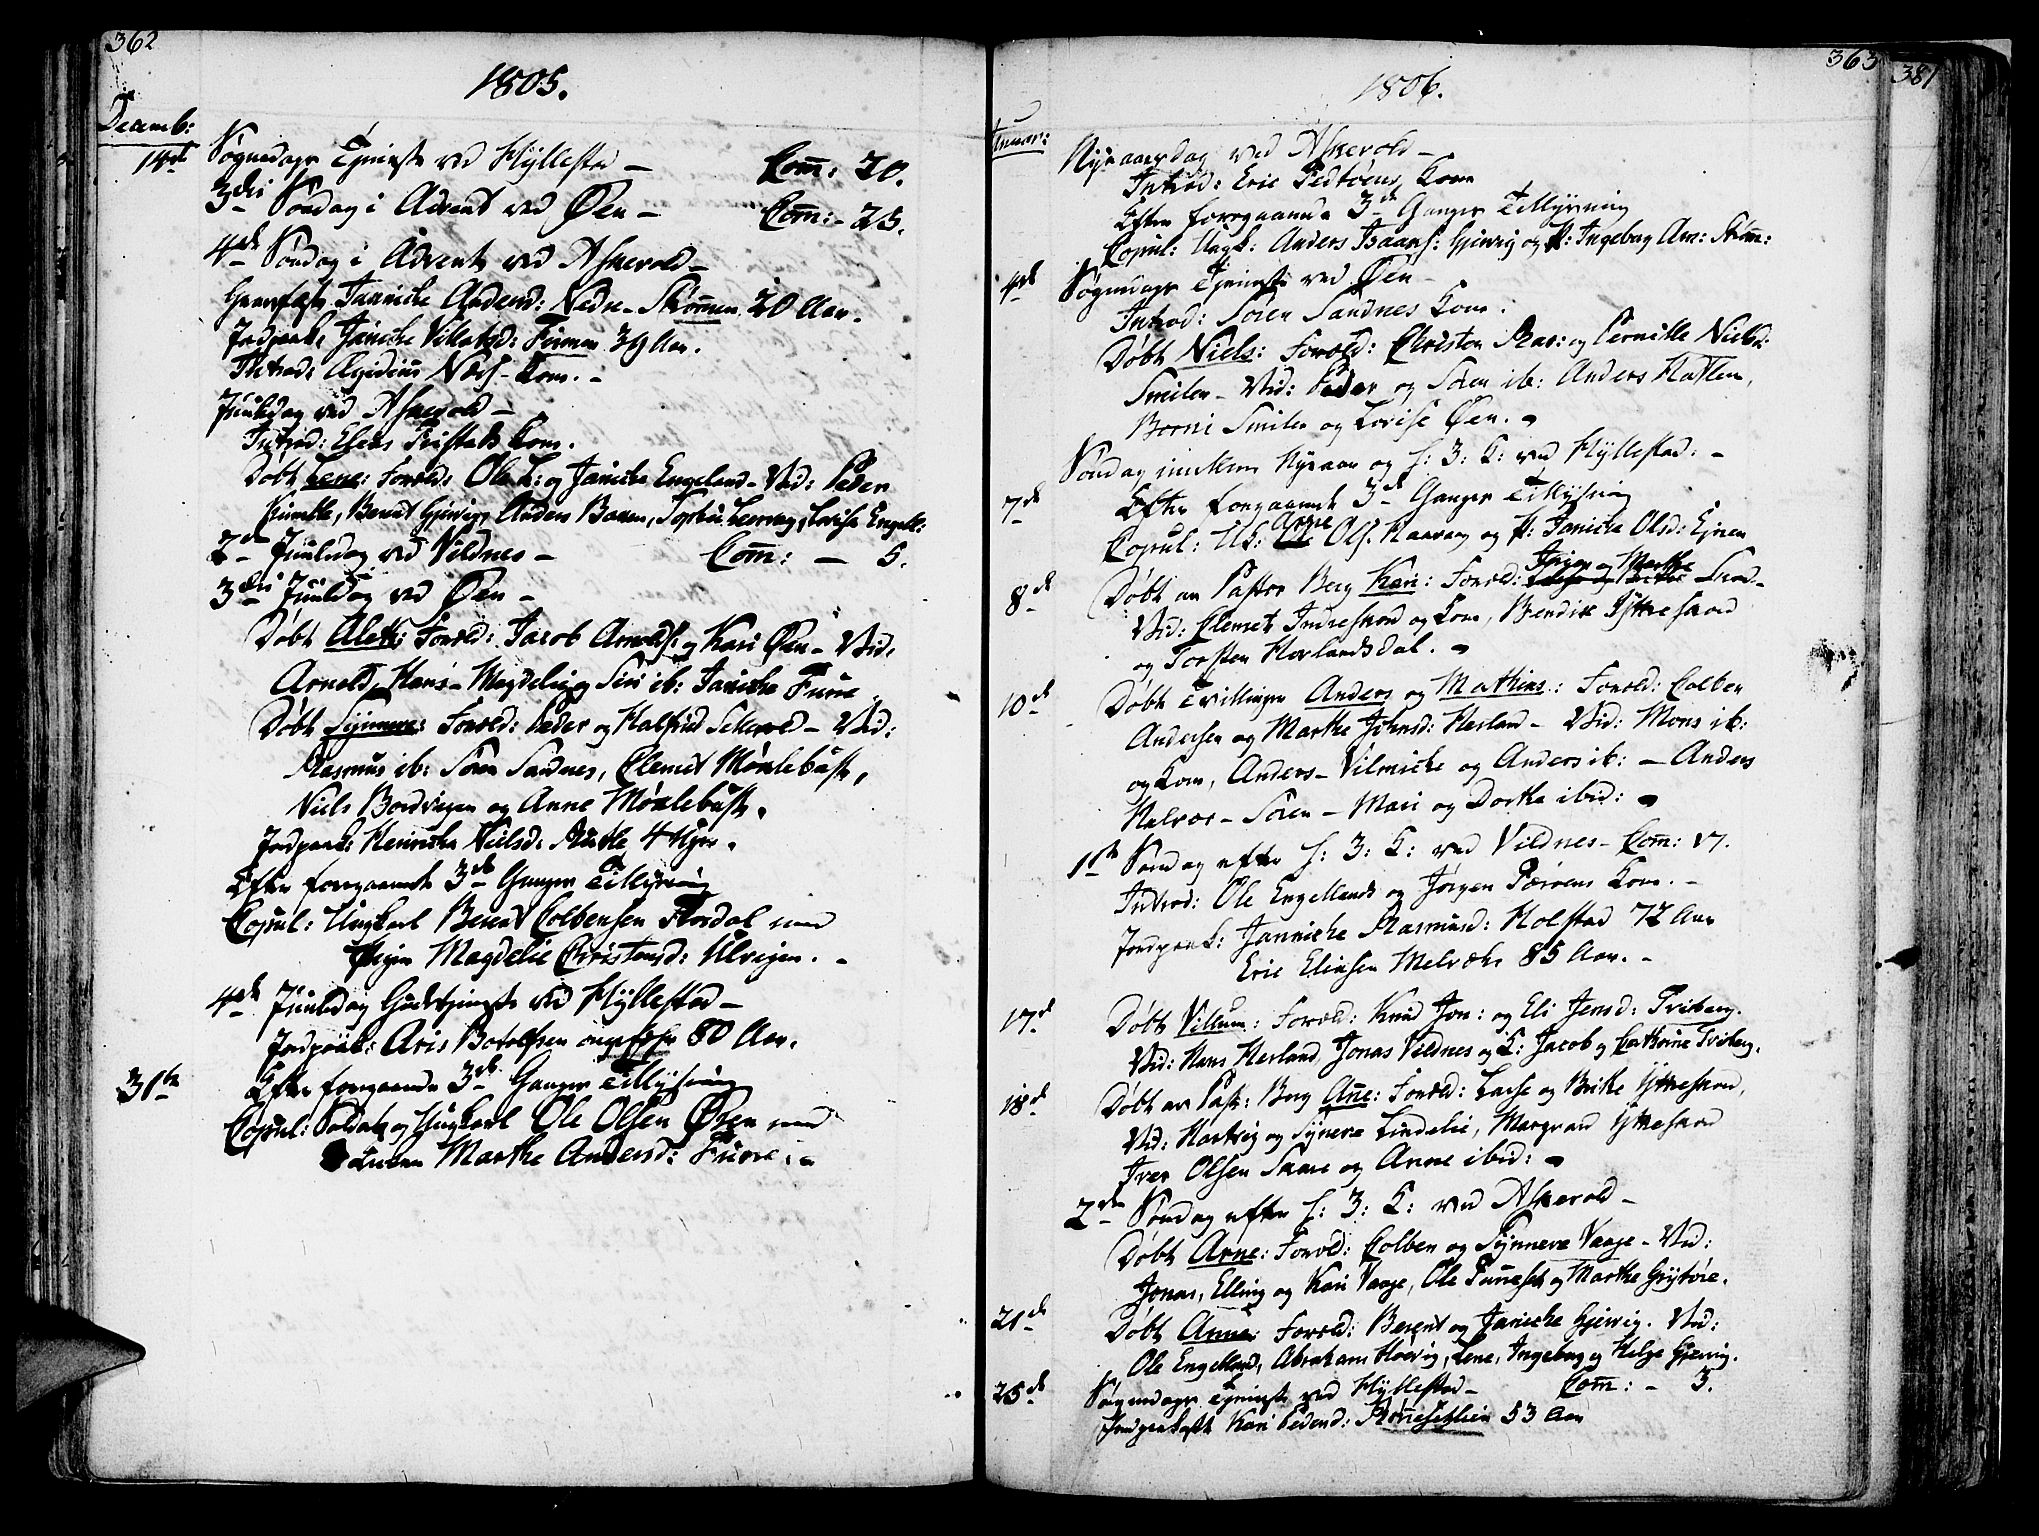 362
1805.
Decemb:
14de Søgnedags Tjeneste ved Hyllestad — Com̄: 20.
3die Søndag i Advent ved Øen — Com̄: - 25.
4de Søndag i Advent ved Askevold —
Jannicke Andersd: Nedre - 20 Aar.
Jordpaak. Janiche Villatsd: 39 Aar.
Introd: Ægidius Næss - Kone. -
Juuledag ved Askevold —
Introd: Elias Kone.
Døbt Lene: Foræld: Ole L: og Janiche Engeland - Vid: Peder
Berent Gjervig, Anders Lovise Engell:
2den Juuledag ved Vildnes — Com̄: — 5.
3die Juuledag ved Øen —
Døbt Foræld: Jacob Arnolds: og Kari Øen - Vid:
Arnold, Hans - Magdeli og Siri ib: Janiche Furre.
Døbt Synneve: Foræld: Peder og Halfrid - Vid:
Rasmus ib: Søren Sandnes, Clemet Mørlebust,
Niels Bordvigen og Anne Mørlebust.
Jordpaak: Henriche Nielsd: 4 Uger.
Efter foregaaende 3de Ganges Tillysning
Copul: Ungkarl Berent Colbensen Flordal med
Pigen Magdelie Christensd: Ulvesen. -
4de Juuledag Gudstjeneste ved Hyllestad —
Jordpaak: Aris Botolfsen ongefehr 80 Aar.
31te Efter foregaaende 3de Ganges Tillysning
Copul: Soldat og Ungkarl Ole Olsen Øren med
Marthe Andersd: Furre. -
363
381
1806.
Januar:
Nytaarsdag ved Askevold —
Introd: Eric Kone
Efter foregaaende 3de Ganges Tillysning
Copul: Ungk: Anders Isaacs: Gjervig og P: Ingebor
4de Søgnedags Tjeneste ved Øen —
Introd: Søren Sandnes Kone.
Døbt Niels: Foræld: Christen Ras: og Pernille Nielsd:
Smilen - Vid: Peder og Søren ib: Anders Hatlen,
Smilen og Lovise Øen. -
Søndag imellem Nytaar og h: 3: K: ved Hyllestad: -
7de Efter foregaaende 3de Ganges Tillysning
Copul: Uk: Arne Ols. og P: Janiche Olsd:
8de Døbt av Pastor Berg Kari: Foræld: og Marthe
Vid: Clemet Indreskord og Kone, Bendix Ytreskord
og Torsten Horlandsdal. -
10de Døbt Tvillinger Anders og Mathias: Foræld: Colben
Andersen og Marthe Johnsd: Herland - Vid: Mons ib:
og Kone, Anders - Vilmiche og Anders ib: — Anders
Melvær - Søren - Mari og Dorthe ibid: -
1ste Søndag efter h: 3: K: ved Vildnes - Com̄: 17.
Introd: Ole Engellands og Jørgen Kone. -
Jordpaak: Janniche Rasmusd: Holstad 72 Aar
Eric Eliasen Melvær 85 Aar. -
17de Døbt Villum: Foræld: Knud Jon: og Eli Jensd: Tviberg.
Vid: Hans Herland Jonas Vildnes og K: Jacob og Cathrine Tviberg.
18de Døbt av Past: Berg Ane: Foræld: Lasse og Brite Ytreskord,
Vid: Hartvig og Syneve Lindelie, Margrand Ytreskord
Iver Olsen Skaar og Anne ibid: -
2den Søndag efter h: 3: K: ved Askevold —
Døbt Arne: Foræld: Colben og Synneve Vaage - Vid:
Jonas, Elling og Kari Vaage, Ole Furreset og Marthe Grytøre.
21de Døbt Anne: Foræld: Berent og Janiche Gjervig. Vid:
Ole Engelland, Abraham Lene, Ingebor og Helge Gjervig.
25de Søgnedags Tjeneste ved Hyllestad — Com̄: - 3.
Jordpaakast Kari Pedersd: 53 Aar